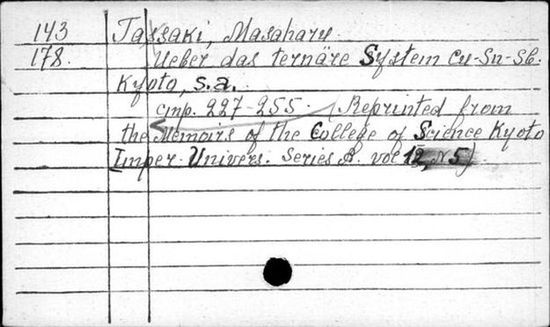 143 Tassaki, Masaharu
178. Ueber das ternäre System Cu-Sn-Sb.
Kyoto, s.a.
стр. 227-255. (Reprinted from
the Memoirs of the College of Science Kyoto
Imper. Univers. Series A. vol 12, N5)